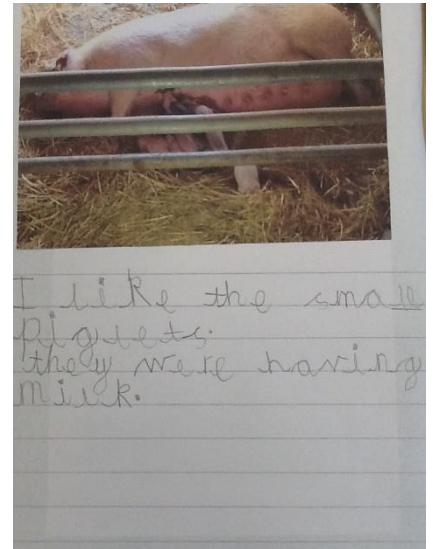 I like the small
piglets.
they were having
milk.